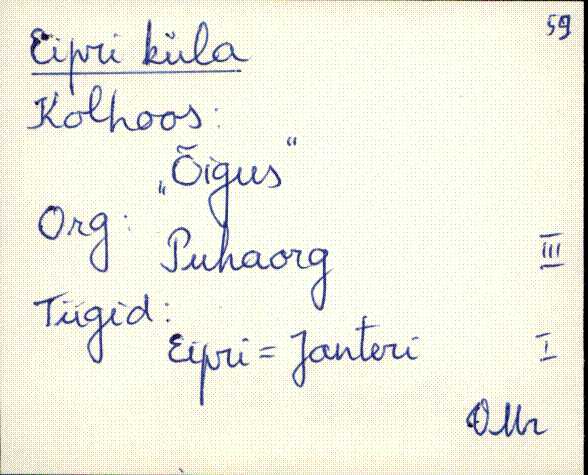 59
Eipri küla
Kolhoos:
„Õigus“
Org:
Puhaorg III
Tiigid:
Eipri = Janteri I